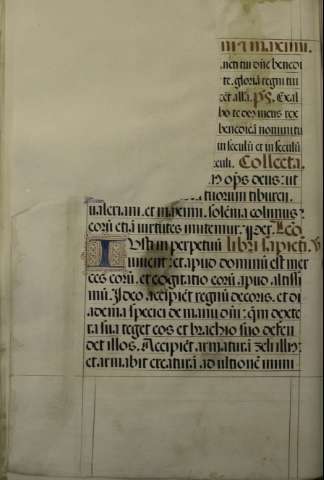 et maximi.
tui dñe benedi
te. gloriã regni tui
añ. allã. ps. Exal
bo te deus meus rex
benedicã nomini tu
in seculũ et in seculũ
culi. Collecta.
ops deus: ut
tuorum tiburcii.
ualeriani. et maximi. solẽnia colimus:
corũ etiã uirtutes imitemur. Per. Leo
Iusti in perpetuũ libri sapiẽti.
uiuent: et apud dominũ est mer
ces eorũ. et cogitatio eorũ. apud altissi
mũ. Ideo accipiẽt regnũ decoris. et di
adema speciei de manu dñi: qm dexte
ra sua teget eos et brachio suo defen
det illos. Accipiet armaturã zeli illiꝰ:
et armabit creaturã ad ultionẽ inimi